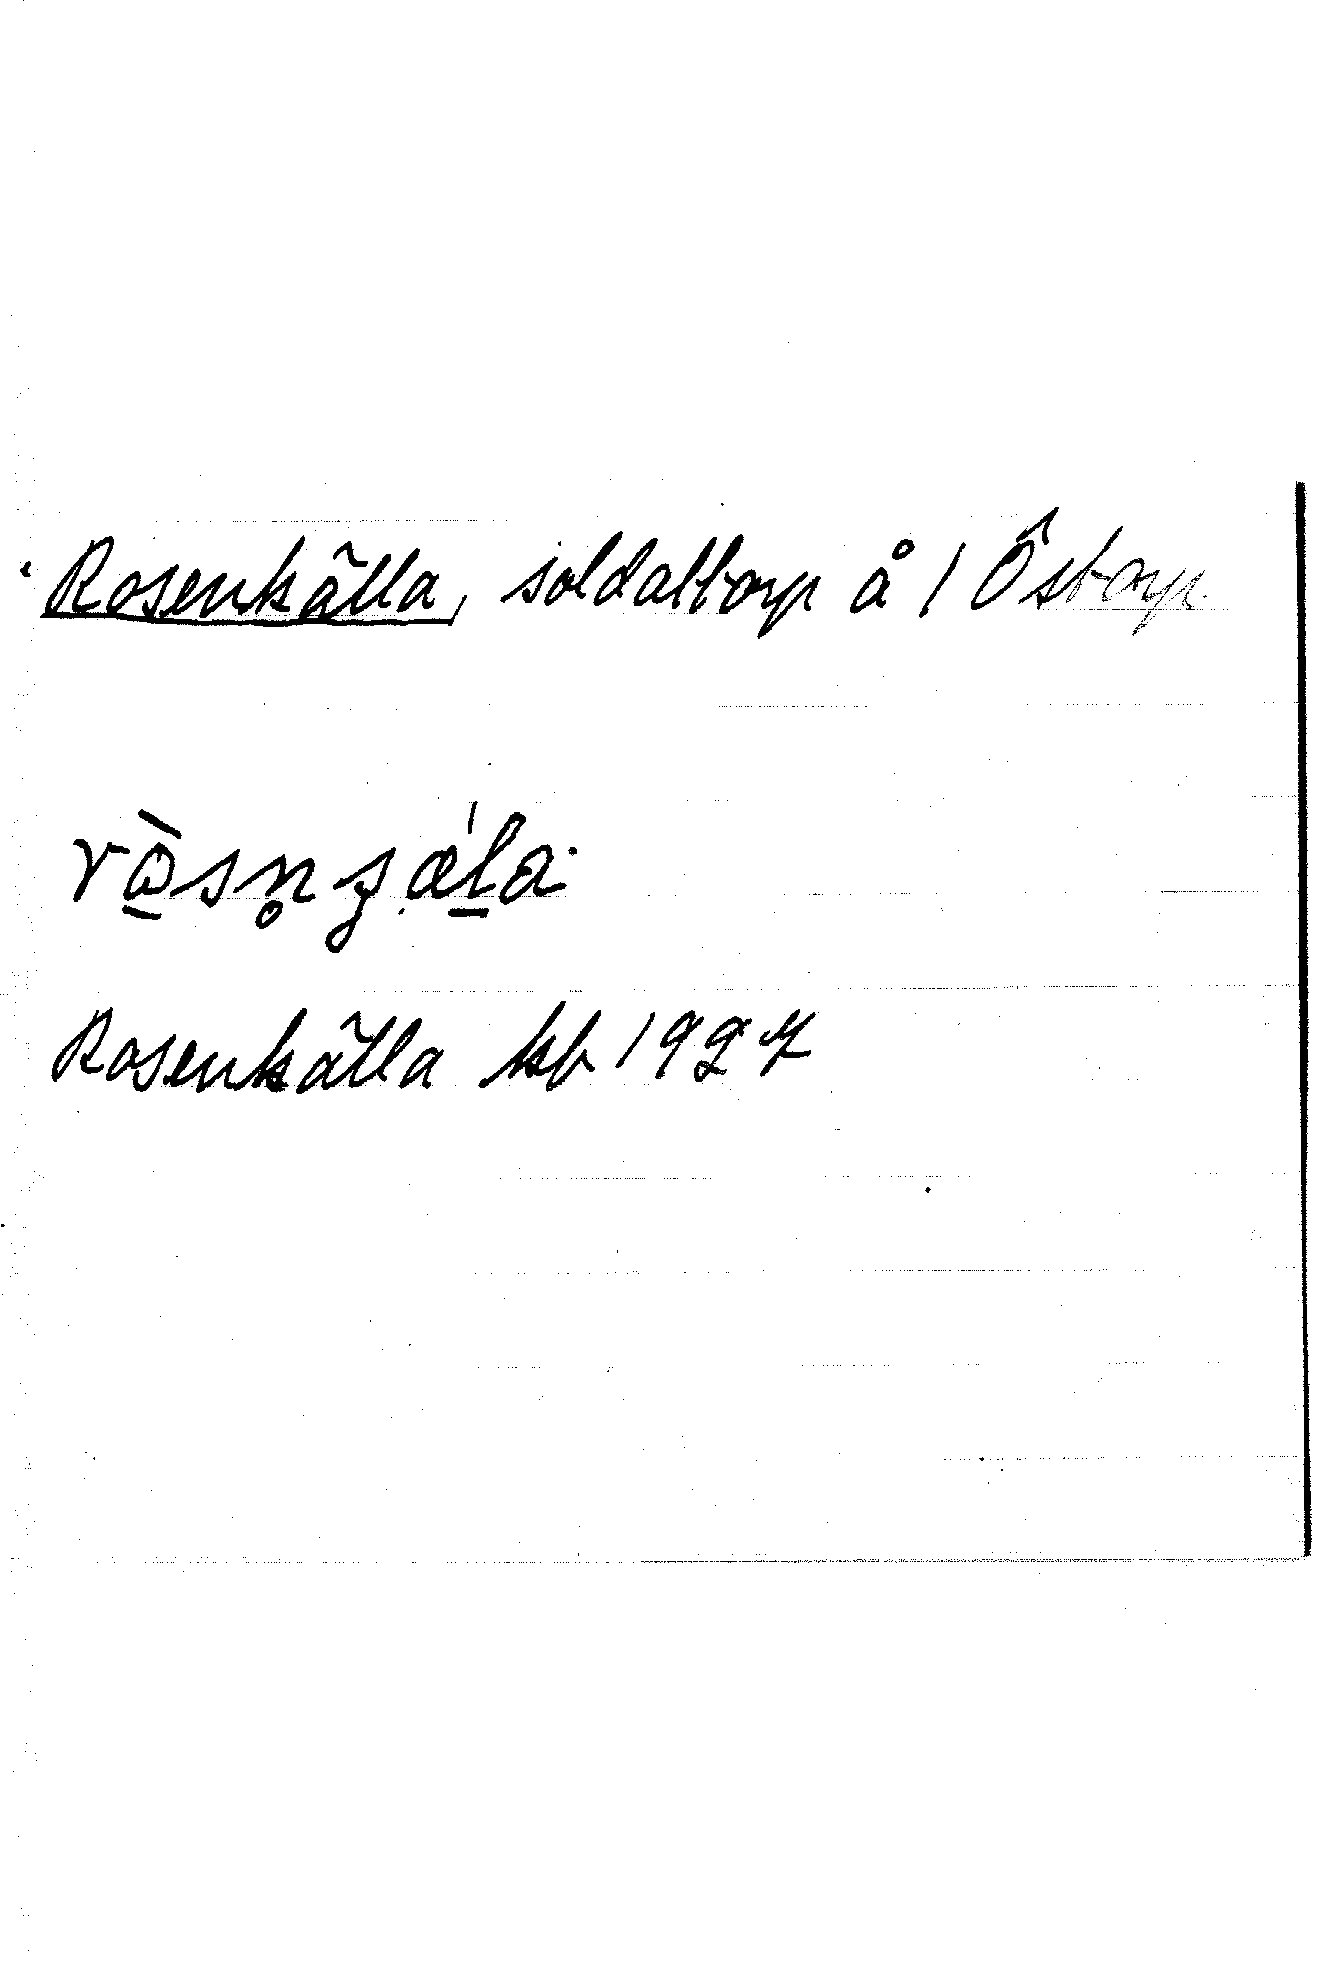 Rosenkälla, soldattorp å 1 Östorp
rò̱sn̥ʒæ̀ḻa
Rosenkälla kb 1927